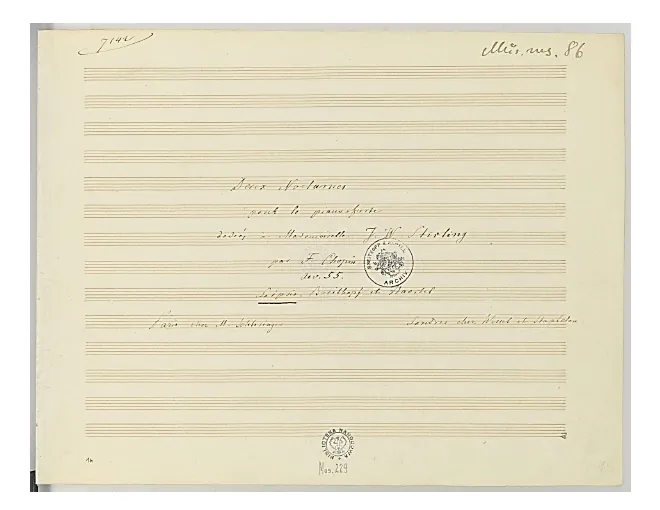 7142
Mus. ms. 86
Deux Nocturnes
pour le pianoforte
dediés à Mademoiselle J. W. Stirling
par F. Chopin
oev. 55.
Leipsic, Breitkopf et Haertel
Paris chez M. Schlesinger
Londres chez Wessel et Stapleton
BREITKOPF & HÄRTEL
ARCHIV
BIBLIOTEKA NARODOWA
Mus. 229